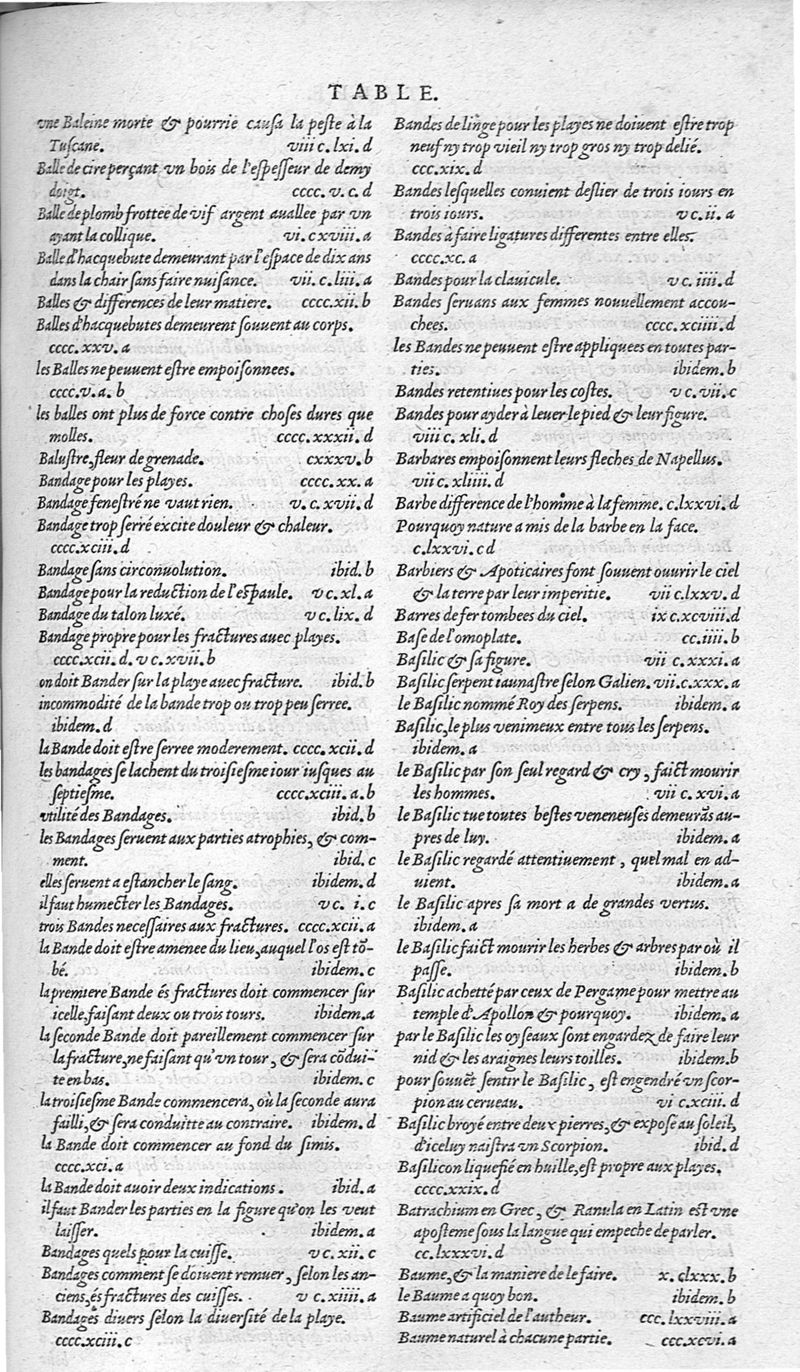 TABLE.
vne Baleine morte & pourrie causa la peste à la
Tuscane. viii c.lxi.d
Balle de cire perçant vn bois de l'espesseur de demy
doigt. cccc.v.c.d
Balle de plomb frottee de vif argent auallee par vn
ayant la collique. vi.cxviii.a
Balle d'hacquebute demeurant par l'espace de dix ans
dans la chair sans faire nuisance. vii.c.liii.a
Balles & differences de leur matiere. cccc.xii.b
Balles d'hacquebutes demeurent souuent au corps.
cccc.xxv.a
les Balles ne peuuent estre empoisonnees.
cccc.v.a.b
les balles ont plus de force contre choses dures que
molles. cccc.xxxii.d
Balustre, fleur de grenade. cxxxv.b
Bandage pour les playes. cccc.xx.a
Bandage fenestré ne vaut rien. v.c.xvii.d
Bandage trop serré excite douleur & chaleur.
cccc.xciii.d
Bandage sans circonuolution. ibid.b
Bandage pour la reduction de l'espaule. v c.xl.a
Bandage du talon luxé. v c.lix.d
Bandage propre pour les fractures auec playes.
cccc.xcii.d. v c.xvii.b
on doit Bander sur la playe auec fracture. ibid.b
incommodité de la bande trop ou trop peu serree.
ibidem.d
la Bande doit estre serree moderement. cccc.xcii.d
les bandages se lachent du troisiesme iour iusques au
septiesme. cccc.xciii.a.b
vtilité des Bandages. ibid.b
les Bandages seruent aux parties atrophies, & com-
ment. ibid.c
elles seruent a estancher le sang. ibidem.d
il faut humecter les Bandages. v c. i.c
trois Bandes necessaires aux fractures. cccc.xcii.a
la Bande doit estre amenee du lieu, auquel l'os est tõ-
bé. ibidem.c
la premiere Bande és fractures doit commencer sur
icelle, faisant deux ou trois tours. ibidem.a
la seconde Bande doit pareillement commencer sur
la fracture, ne faisant qu'vn tour, & sera cõdui-
te en bas. ibidem.c
la troisiesme Bande commencera, où la seconde aura
failli, & sera conduitte au contraire. ibidem.d
la Bande doit commencer au fond du simis.
cccc.xci.a
la Bande doit auoir deux indications. ibid.a
il faut Bander les parties en la figure qu'on les veut
laisser. ibidem.a
Bandages quels pour la cuisse. v c.xii.c
Bandages comment se doiuent remuer, selon les an-
ciens, és fractures des cuisses. v c.xiiii.a
Bandages diuers selon la diuersité de la playe.
cccc.xciii.c
Bandes de linge pour les playes ne doiuent estre trop
neuf ny trop vieil ny trop gros ny trop delié.
ccc.xix.d
Bandes lesquelles conuient deslier de trois iours en
trois iours. v c.ii.a
Bandes à faire ligatures differentes entre elles.
cccc.xc.a
Bandes pour la clauicule. v c.iiii.d
Bandes seruans aux femmes nouuellement accou-
chees. cccc.xciiii.d
les Bandes ne peuuent estre appliquees en toutes par-
ties. ibidem.b
Bandes retentiues pour les costes. v c.vii.c
Bandes pour ayder à leuer le pied & leur figure.
viii c.xli.d
Barbares empoisonnent leurs fleches de Napellus.
vii c.xliiii.d
Barbe difference de l'homme à la femme. c.lxxvi.d
Pourquoy nature a mis de la barbe en la face.
c.lxxvi.cd
Barbiers & Apoticaires font souuent ouurir le ciel
& la terre par leur imperitie. vii c.lxxv.d
Barres de fer tombees du ciel. ix c.xcviii.d
Base de l'omoplate. cc.iiii.b
Basilic & sa figure. vii c.xxxi.a
Basilic serpent iaunastre selon Galien. vii.c.xxx.a
le Basilic nommé Roy des serpens. ibidem.a
Basilic, le plus venimeux entre tous les serpens.
ibidem.a
le Basilic par son seul regard & cry, faict mourir
les hommes. vii c.xvi.a
le Basilic tue toutes bestes veneneuses demeurãs au-
pres de luy. ibidem.a
le Basilic regardé attentiuement, quel mal en ad-
uient. ibidem.a
le Basilic apres sa mort a de grandes vertus.
ibidem.a
le Basilic faict mourir les herbes & arbres par où il
passe. ibidem.b
Basilic achetté par ceux de Pergame pour mettre au
temple d'Apollon & pourquoy. ibidem.a
par le Basilic les oyseaux sont engardez de faire leur
nid & les araignes leurs toilles. ibidem.b
pour souuẽt sentir le Basilic, est engendré vn scor-
pion au cerueau. vi c.xciii.d
Basilic broyé entre deux pierres, & exposé au soleil,
d'iceluy naistra vn Scorpion. ibid.d
Basilicon liquefié en huille, est propre aux playes.
cccc.xxix.d
Batrachium en Grec, & Ranula en Latin est vne
aposteme sous la langue qui empeche de parler.
cc.lxxxvi.d
Baume, & la maniere de le faire. x.clxxx.b
le Baume a quoy bon. ibidem.b
Baume artificiel de l'autheur. ccc.lxxviii.a
Baume naturel à chacune partie. ccc.xcvi.a